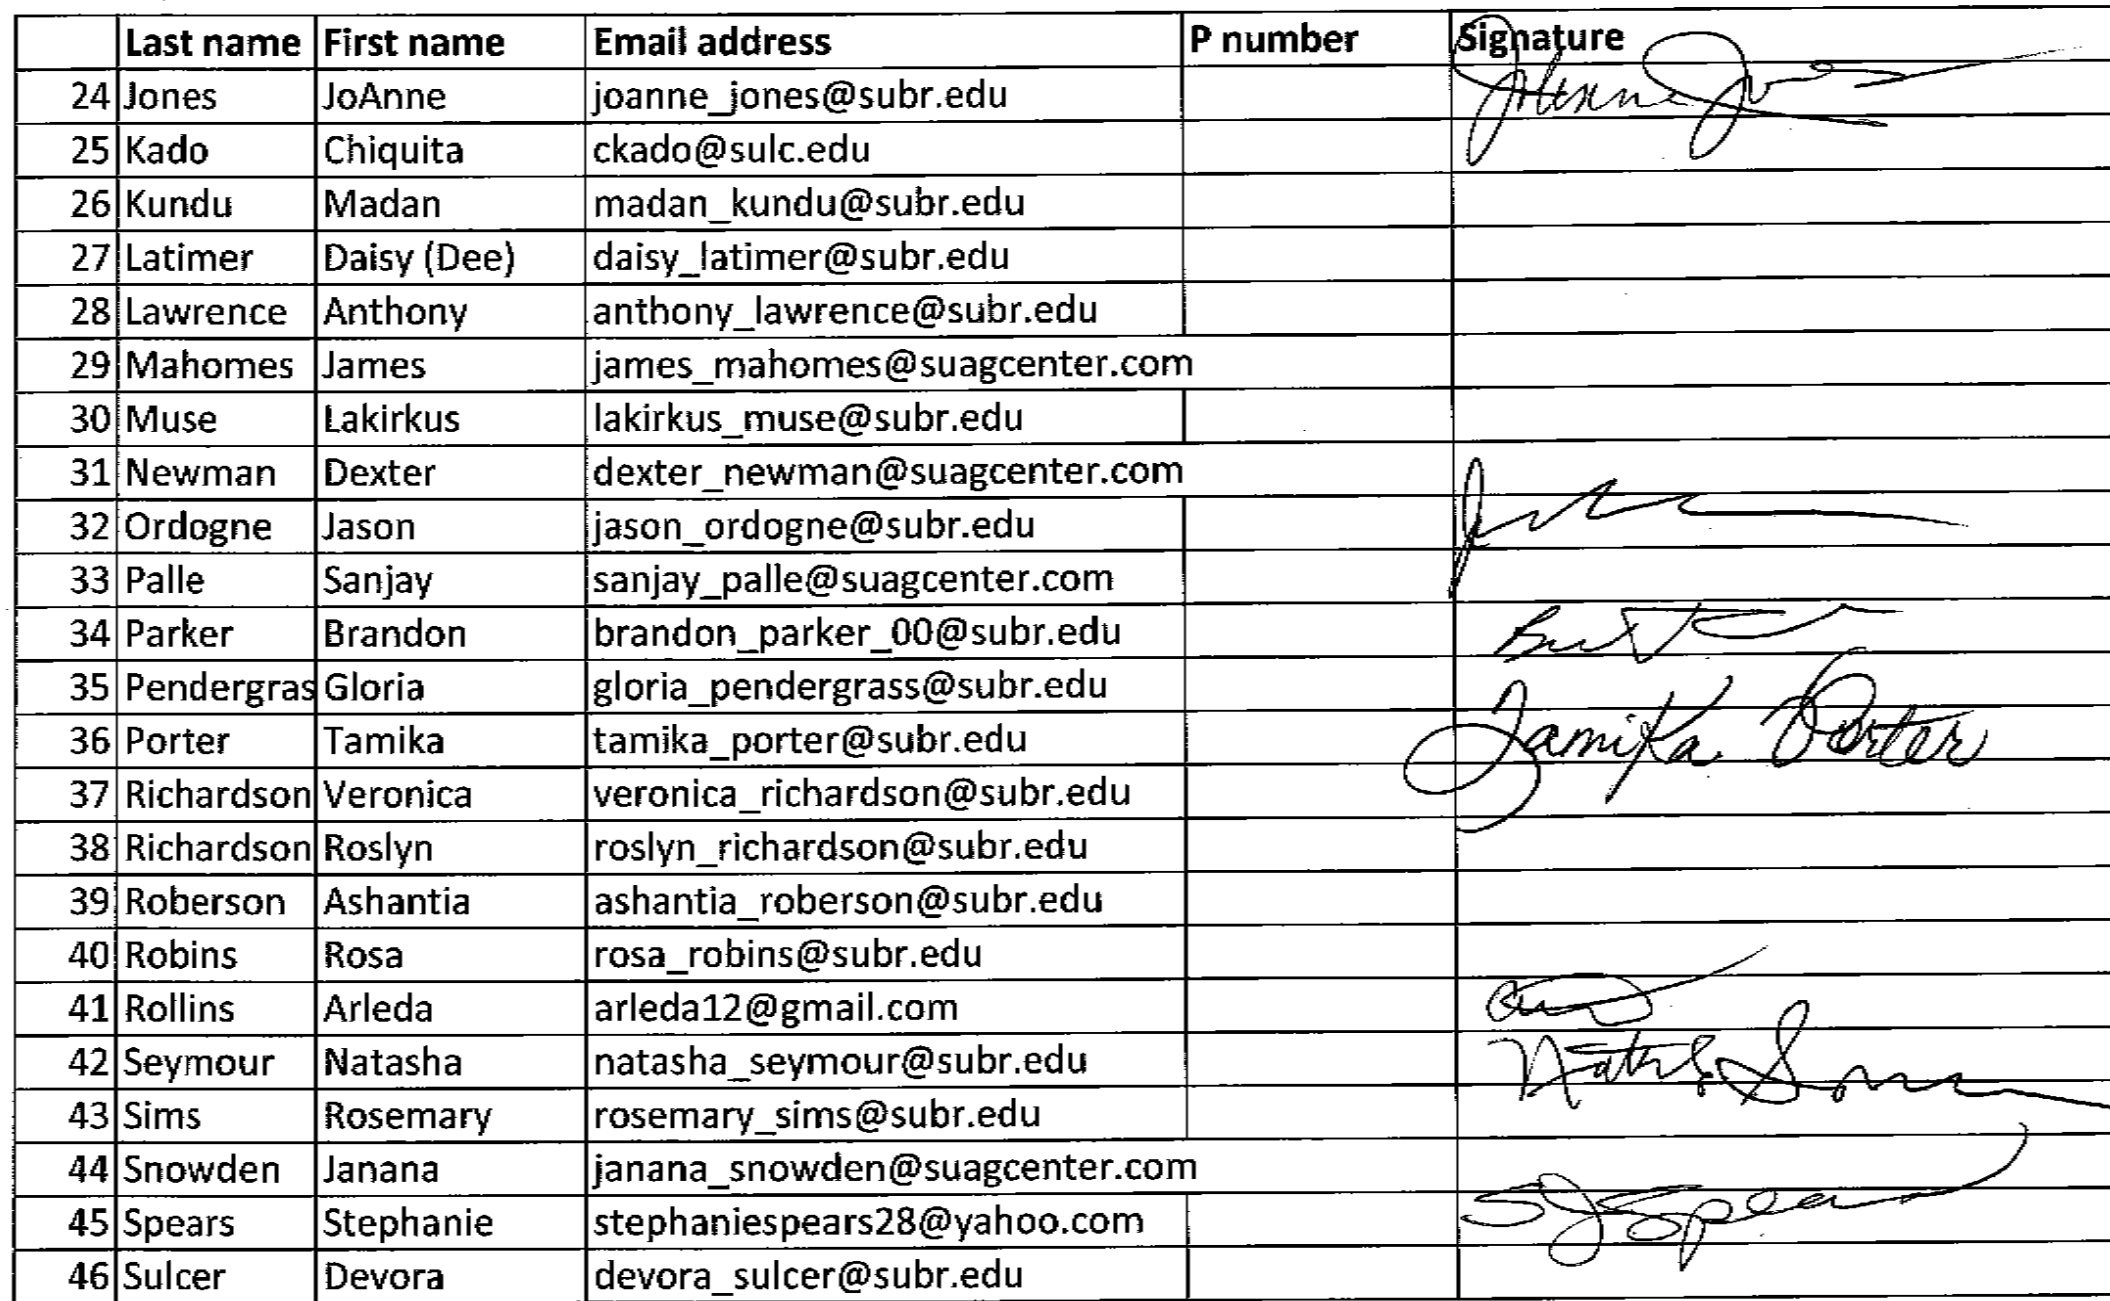 Last name First name Email address P number Signature
24 Jones JoAnne joanne_jones@subr.edu
25 Kado Chiquita ckado@sulc.edu
26 Kundu Madan madan_kundu@subr.edu
27 Latimer Daisy (Dee) daisy_latimer@subr.edu
28 Lawrence Anthony anthony_lawrence@subr.edu
29 Mahomes James james_mahomes@suagcenter.com
30 Muse Lakirkus lakirkus_muse@subr.edu
31 Newman Dexter dexter_newman@suagcenter.com
32 Ordogne Jason jason_ordogne@subr.edu
33 Palle Sanjay sanjay_palle@suagcenter.com
34 Parker Brandon brandon_parker_00@subr.edu
35 Pendergras Gloria gloria_pendergrass@subr.edu
36 Porter Tamika tamika_porter@subr.edu Tamika Porter
37 Richardson Veronica veronica_richardson@subr.edu
38 Richardson Roslyn roslyn_richardson@subr.edu
39 Roberson Ashantia ashantia_roberson@subr.edu
40 Robins Rosa rosa_robins@subr.edu
41 Rollins Arleda arleda12@gmail.com
42 Seymour Natasha natasha_seymour@subr.edu
43 Sims Rosemary rosemary_sims@subr.edu
44 Snowden Janana janana_snowden@suagcenter.com
45 Spears Stephanie stephaniespears28@yahoo.com
46 Sulcer Devora devora_sulcer@subr.edu